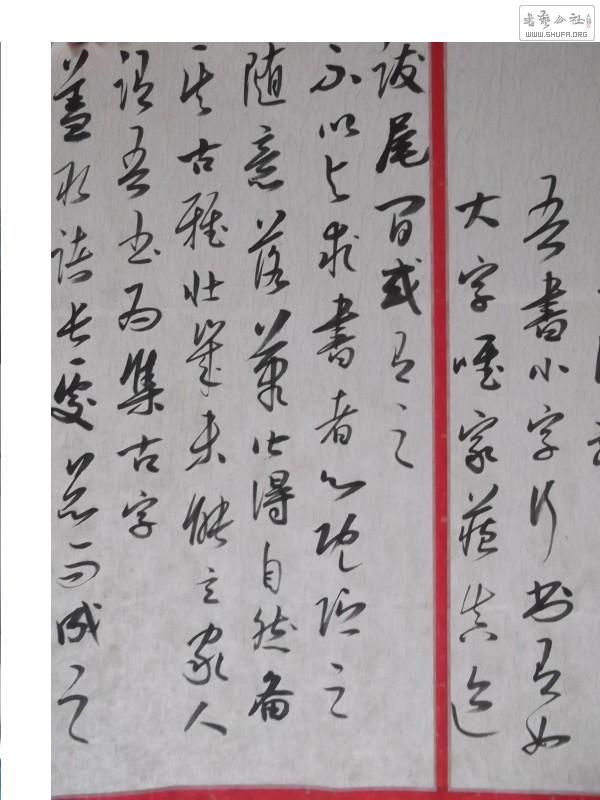 書藝公社
WWW.SHUFA.ORG
吾書小字行书有如
大字唯家藏真迹
跋尾间或有之
不以与求書者心既贮之
随意落筆皆得自然備
其古雅壮歲未能立家人
謂吾书为集古字
蓋取諸长處總而成之